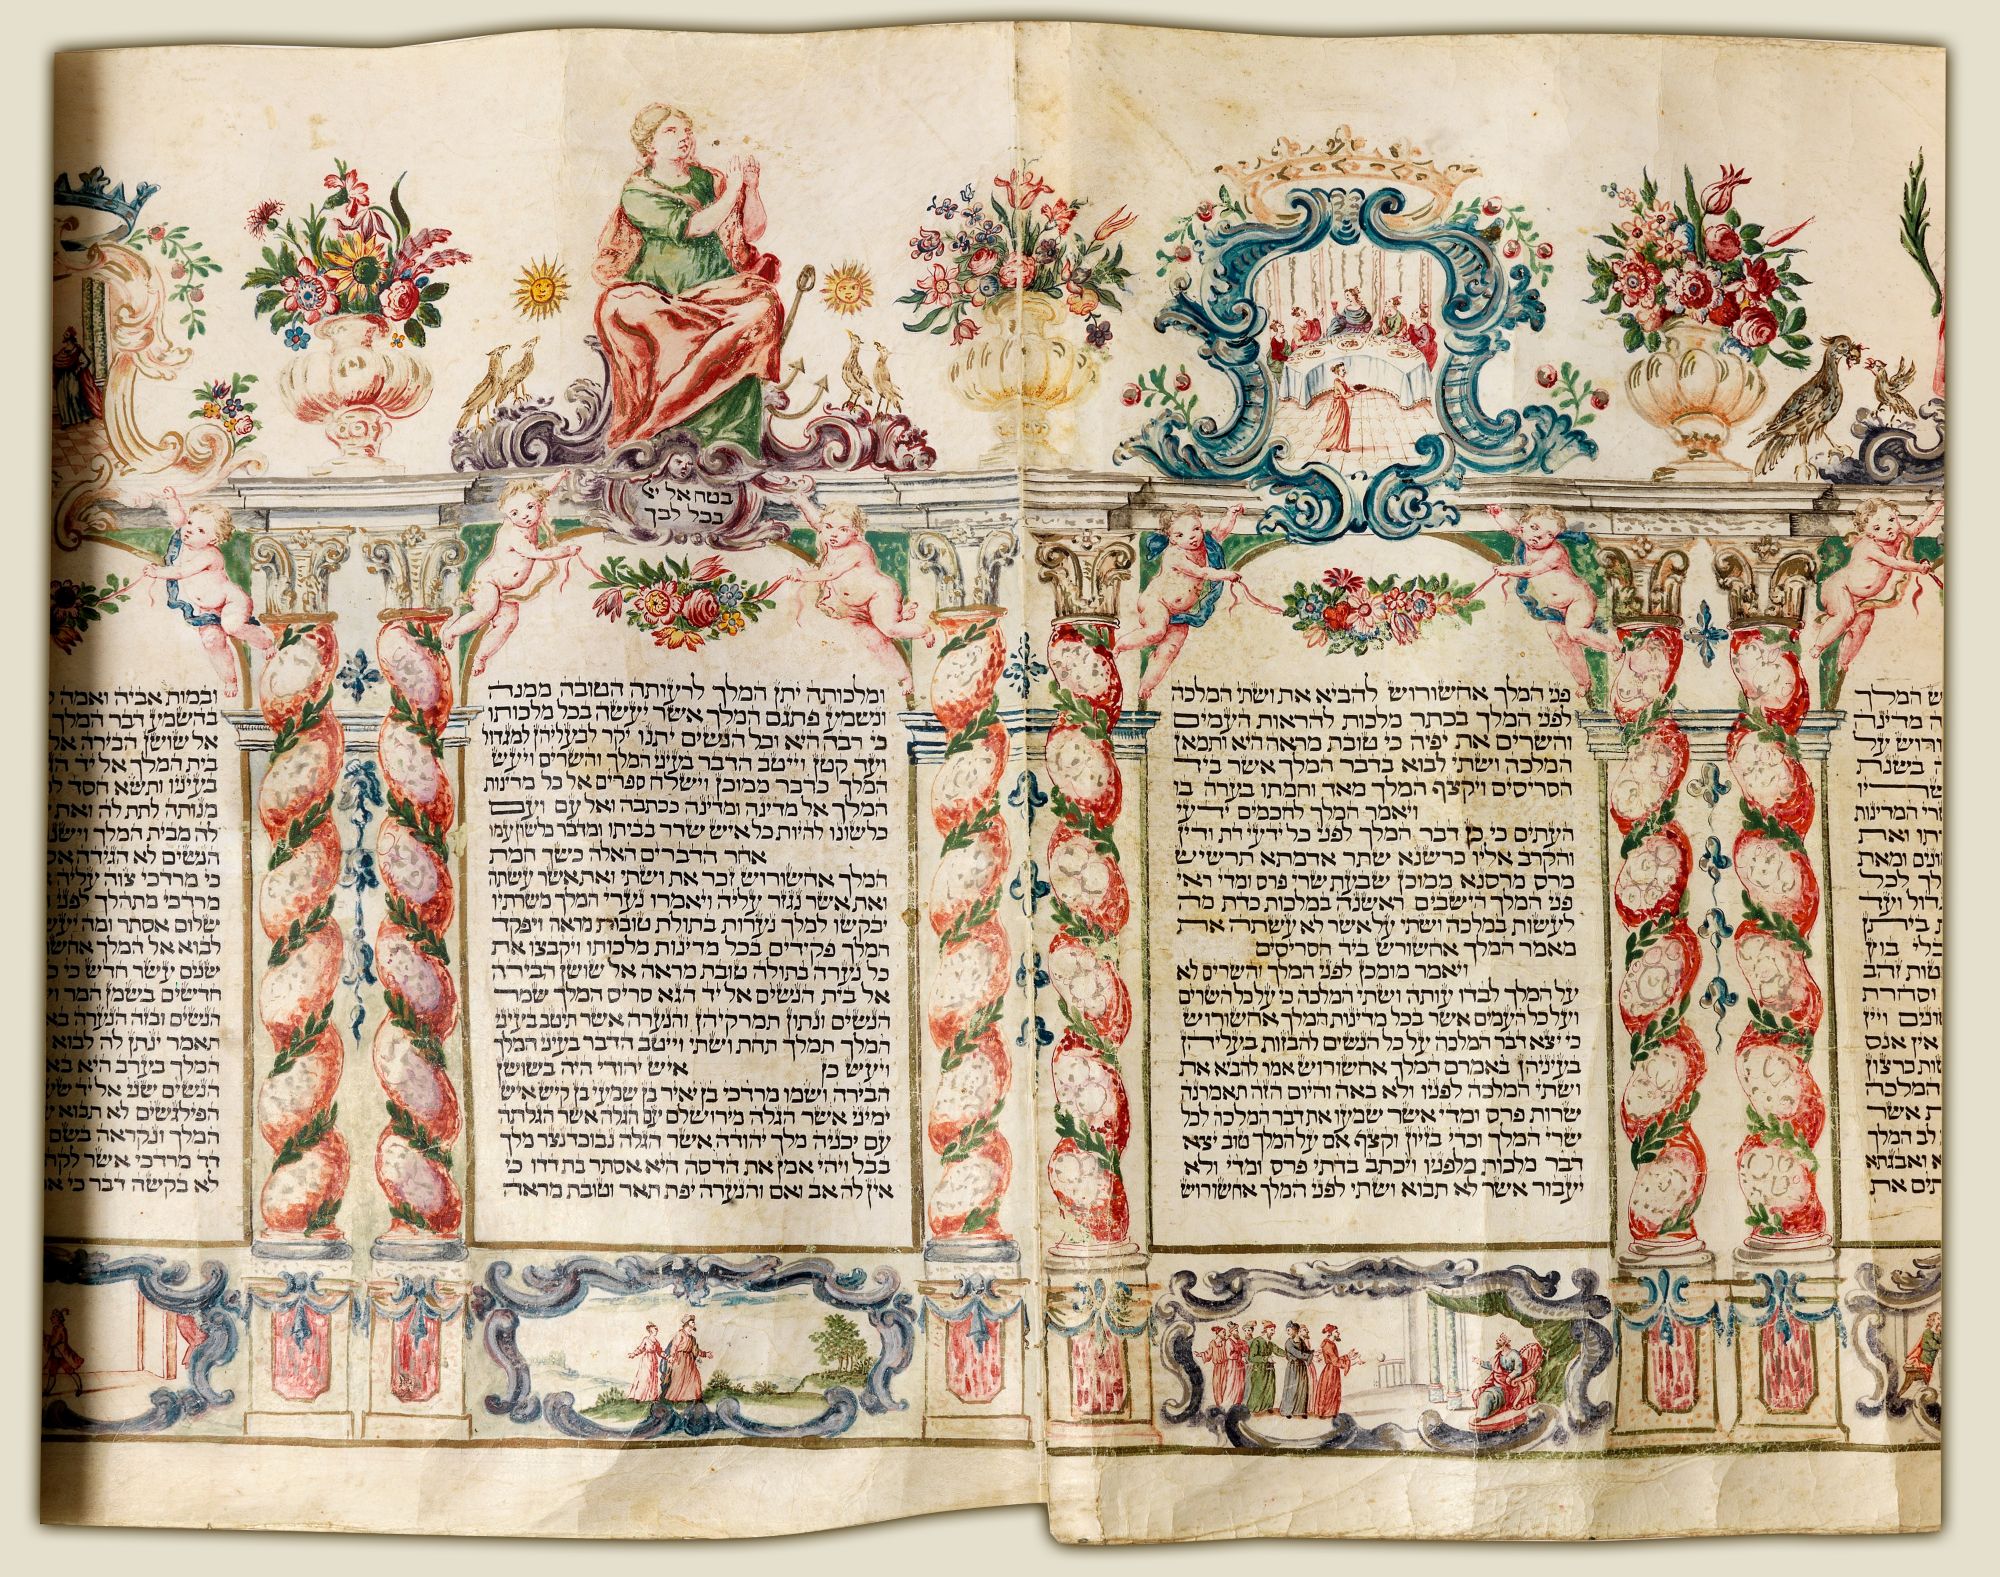 המלך
מדינה
על
בשנת
המדינות
ואת
ומאת
לכל
ועד
ביתן
בוץ
זהב
וסחרת
ויין
אין אנס
כרצון
המלכה
אשר
לב המלך
ואבגתא
את
פני המלך אחשורוש להביא את ושתי המלכה
לפני המלך בכתר מלכות להראות העמים
והשרים את יפיה כי טובת מראה היא ותמאן
המלכה ושתי לבוא בדבר המלך אשר ביד
הסריסים ויקצף המלך מאד וחמתו בערה בו
ויאמר המלך לחכמים ידעי
העתים כי כן דבר המלך לפני כל ידעי דת ודין
והקרב אליו כרשנא שתר אדמתא תרשיש
מרס מרסנא ממוכן שבעת שרי פרס ומדי ראי
פני המלך הישבים ראשנה במלכות כדת מה
לעשות במלכה ושתי על אשר לא עשתה את
מאמר המלך אחשורוש ביד הסריסים
ויאמר מומכן לפני המלך והשרים לא
על המלך לבדו עותה ושתי המלכה כי על כל השרים
ועל כל העמים אשר בכל מדינות המלך אחשורוש
כי יצא דבר המלכה על כל הנשים להבזות בעליהן
בעיניהן באמרם המלך אחשורוש אמר להביא את
ושתי המלכה לפניו ולא באה והיום הזה תאמרנה
שרות פרס ומדי אשר שמעו את דבר המלכה לכל
שרי המלך וכדי בזיון וקצף אם על המלך טוב יצא
דבר מלכות מלפניו ויכתב בדתי פרס ומדי ולא
יעבור אשר לא תבוא ושתי לפני המלך אחשורוש
בטח אל יי
בכל לבך
ומלכותה יתן המלך לרעותה הטובה ממנה
ונשמע פתגם המלך אשר יעשה בכל מלכותו
כי רבה היא וכל הנשים יתנו יקר לבעליהן למגדול
ועד קטן וייטב הדבר בעיני המלך והשרים ויעש
המלך כדבר ממוכן וישלח ספרים אל כל מדינות
המלך אל מדינה ומדינה ככתבה ואל עם ועם
כלשונו להיות כל איש שרר בביתו ומדבר כלשון עמו
אחר הדברים האלה כשך חמת
המלך אחשורוש זכר את ושתי ואת אשר עשתה
ואת אשר נגזר עליה ויאמרו נערי המלך משרתיו
יבקשו למלך נערות בתולת טובות מראה ויפקד
המלך פקידים בכל מדינות מלכותו ויקבצו את
כל נערה בתולה טובת מראה אל שושן הבירה
אל בית הנשים אל יד הגא סריס המלך שמר
הנשים ונתון תמרקיהן והנערה אשר תיטב בעיני
המלך תמלך תחת ושתי וייטב הדבר בעיני המלך
ויעש כן איש יהודי היה בשושן
הבירה ושמו מרדכי בן יאיר בן שמעי בן קיש איש
ימיני אשר הגלה מירושלם עם הגלה אשר הגלתה
עם יכניה מלך יהודה אשר הגלה נבוכדנצר מלך
בבל ויהי אמן את הדסה היא אסתר בת דדו כי
אין לה אב ואם והנערה יפת תאר וטובת מראה
ובמות אביה ואמה
בהשמע דבר המלך
אל שושן הבירה אל
בית המלך אל יד
בעיניו ותשא חסד
מנותה לתת לה ואת
לה מבית המלך
הנשים לא הגידה
כי מרדכי צוה עליה
מרדכי מתהלך לפני
שלום אסתר ומה
לבוא אל המלך
שנים עשר חדש כי
חדשים בשמן המר
הנשים ובזה הנערה
תאמר ינתן לה לבוא
המלך בערב היא
הנשים שני אל יד
הפילגשים לא תבוא
המלך ונקראה בשם
דד מרדכי אשר
לא בקשה דבר כי